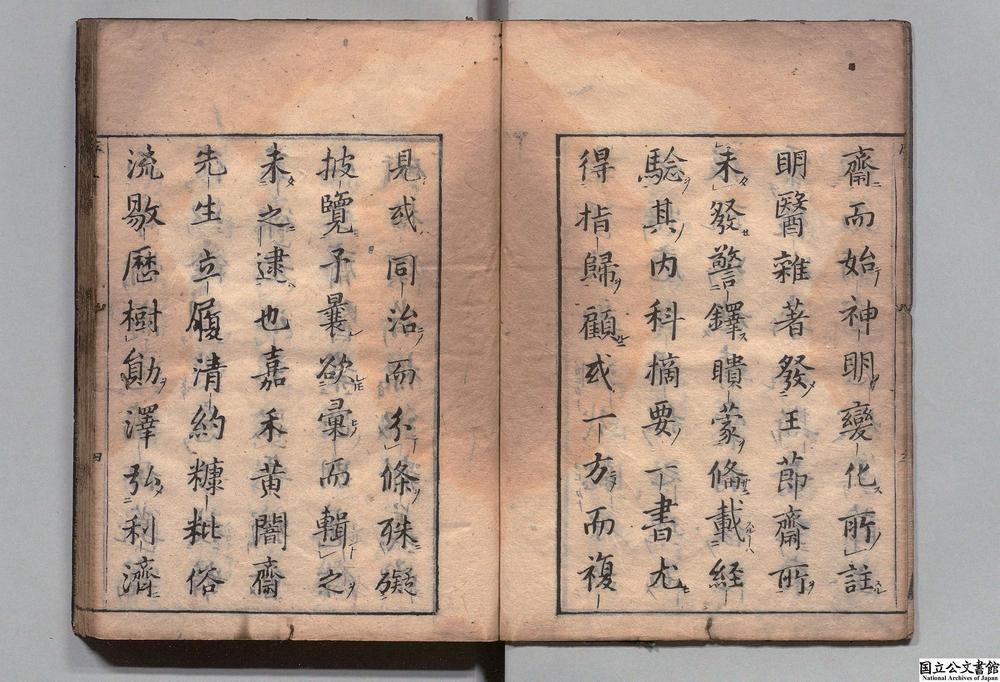 齋而始神明變化所註
明醫雜著發王節齋所
未發警鐸瞶蒙備載経
驗其内科摘要一書尤
得指歸顧或一方而複
見或同治而分條殊礙
披覽予曩欲彙而輯之
未之逮也嘉禾黄闇齋
先生立履清約糠粃俗
流敭歴樹勛澤弘利濟
国立公文書館
National Archives of Japan